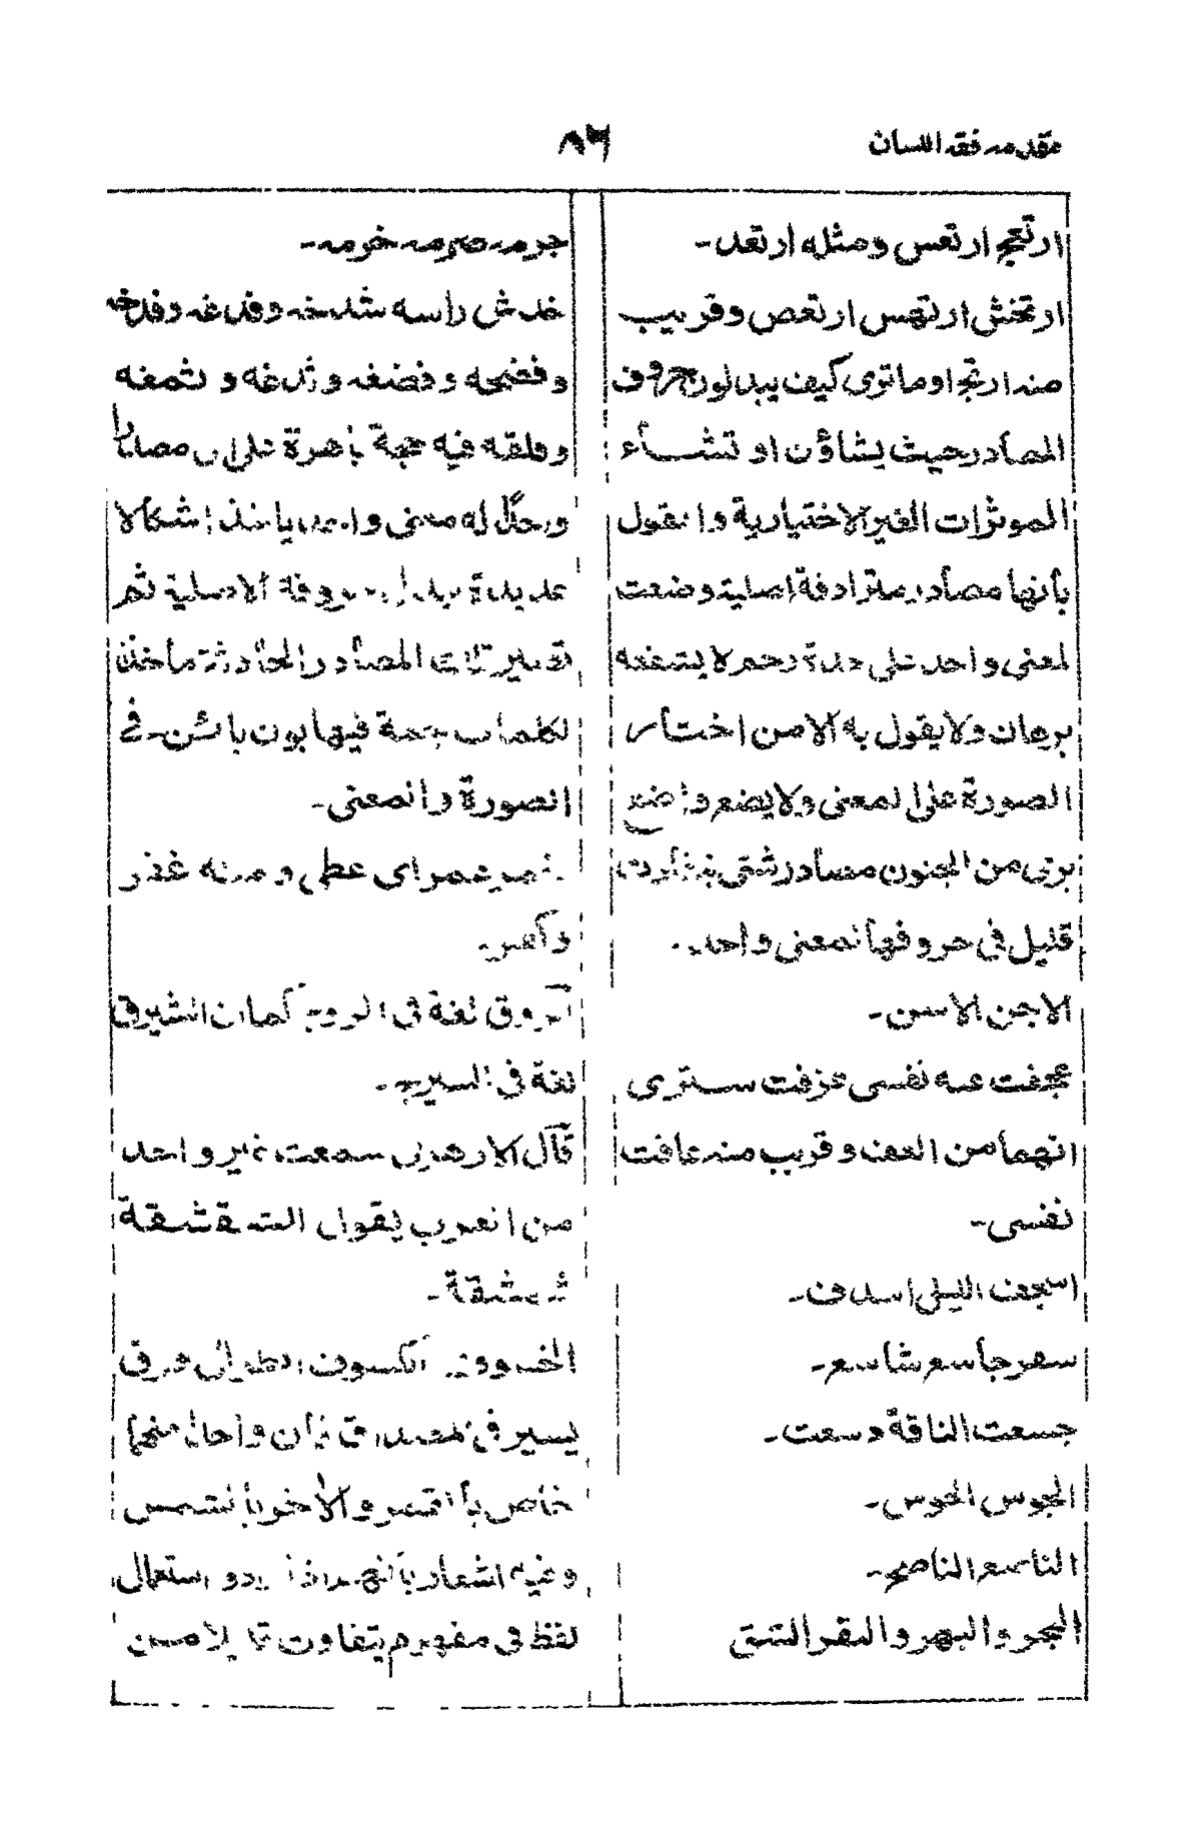 مقدمه فقه اللسان
٨٦
ارتعج ارتعس ومثله ارتعد۔
ارتخش ارتهس ارتعص وقريب
منه ارتجا وما ترى كيف يبدلون حروف
المصادر حيث يشاؤن او تشاء
الموثرات الغير الاختيارية والقول
بأنها مصادر مترادفة اصلية وضعت
لمعنى واحد على حدة زعم لا يشفعه
برهان ولا يقول به الا من اختار
الصورة على المعنى ولا يضع واضع
برئ من الجنون مصادر شتى بتفاوت
قليل في حروفها لمعنى واحد۔
الاجن الاسن۔
عجفت عنه نفسى عزفت سترى
انهما من العف وقريب منه عافت
نفسى۔
اسجف الليل اسدف۔
سفر جاسع شاسع۔
جسعت الناقة دسعت۔
الجوس الحوس۔
الناصع الناصح۔
البجر والبهر والبقر الشق
جرمه صرمه خرمه۔
خدش راسه شدخه وفدغه وفدخه
وفضخه وفضغه وثدغه وثمغه
وفلقه فيه حجة باهرة على ان مصدرا
وحدا له معنى واحد ياخذ اشكالا
عديدة بابدال حروفه الاصلية ثم
تصير تلك المصادر الحادثة مآخذ
لكلمات جمة فيها بون بائن في
الصورة والمعنى۔
غمر اى غطى ومنه غفر
وكفر۔
لغة في كما ان الشيرق
لغة في السيرج۔
قال الازهرى سمعت غير واحد
من العرب يقول الشقشقة
شمشقة۔
الخسوف الكسوف
يسير في المصداق
خاص بالقمر والآخر بالشمس
وفيه اشعار بأنهم استعمال
لفظ في مفهوم يتفاوت